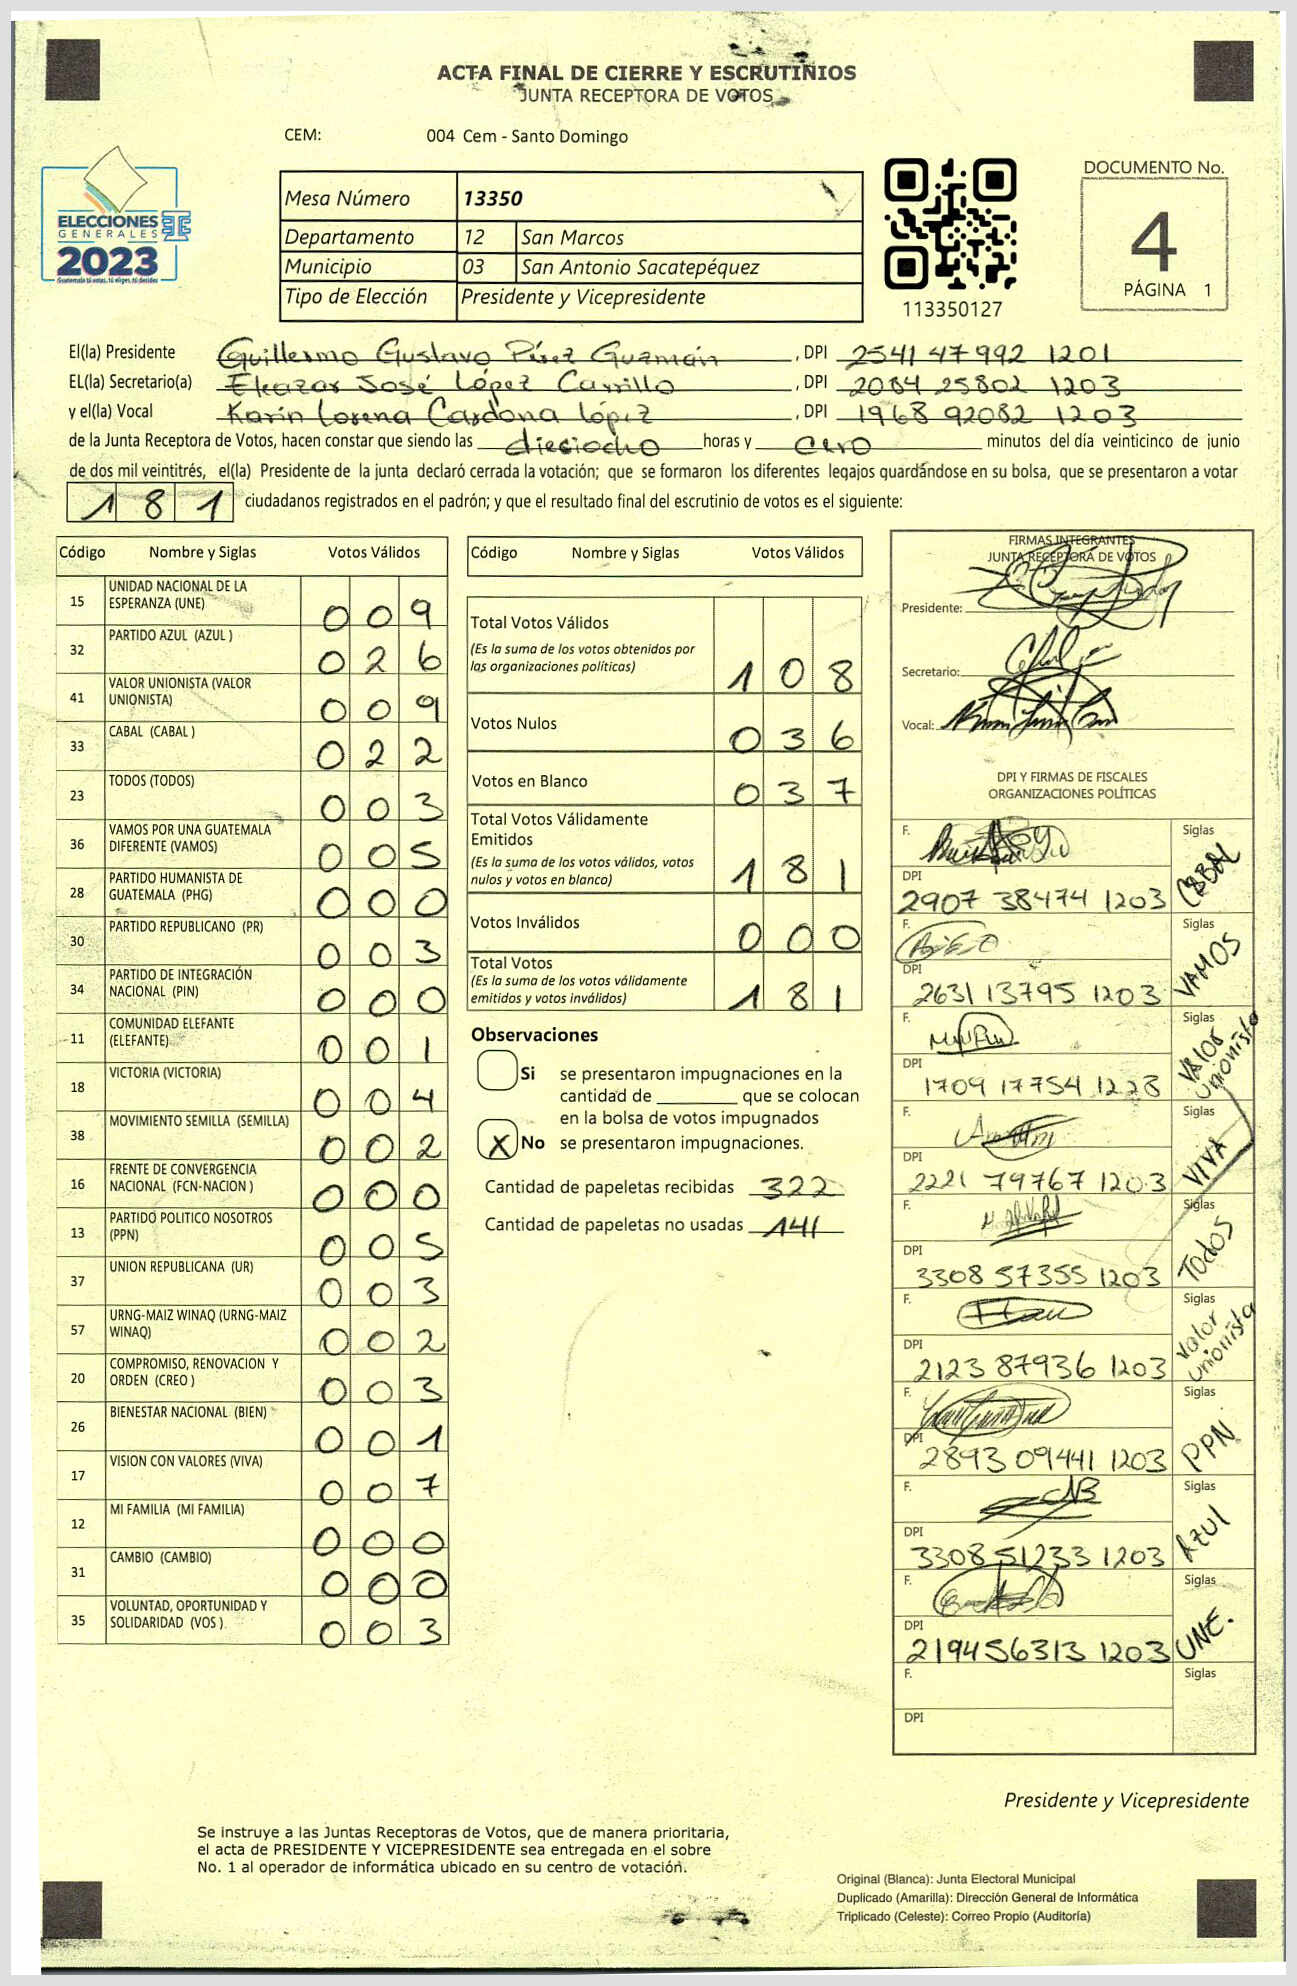 ACTA FINAL DE CIERRE Y ESCRUTINIOS
JUNTA RECEPTORA DE VOTOS
CEM: 004 Cem - Santo Domingo
ELECCIONES
GENERALES
2023
Guatemala tú votas, tú eliges, tú decides
Mesa Número 13350
Departamento 12 San Marcos
Municipio 03 San Antonio Sacatepéquez
Tipo de Elección Presidente y Vicepresidente
113350127
DOCUMENTO No.
4
PÁGINA 1
El(la) Presidente Guillermo Gustavo Pérez Guzmán, DPI 2541 47992 1201
EL(la) Secretario(a) Eleazar José López Carrillo, DPI 2084 25802 1203
y el(la) Vocal Karin Lorena Cardona López, DPI 1968 92082 1203
de la Junta Receptora de Votos, hacen constar que siendo las dieciocho horas y cero minutos del día veinticinco de junio
de dos mil veintitrés, el(la) Presidente de la junta declaró cerrada la votación; que se formaron los diferentes legajos guardándose en su bolsa, que se presentaron a votar
181 ciudadanos registrados en el padrón; y que el resultado final del escrutinio de votos es el siguiente:
Código Nombre y Siglas Votos Válidos
15 UNIDAD NACIONAL DE LA ESPERANZA (UNE) 009
32 PARTIDO AZUL (AZUL ) 026
41 VALOR UNIONISTA (VALOR UNIONISTA) 009
33 CABAL (CABAL ) 022
23 TODOS (TODOS) 003
36 VAMOS POR UNA GUATEMALA DIFERENTE (VAMOS) 005
28 PARTIDO HUMANISTA DE GUATEMALA (PHG) 000
30 PARTIDO REPUBLICANO (PR) 003
34 PARTIDO DE INTEGRACIÓN NACIONAL (PIN) 000
11 COMUNIDAD ELEFANTE (ELEFANTE) 001
18 VICTORIA (VICTORIA) 004
38 MOVIMIENTO SEMILLA (SEMILLA) 002
16 FRENTE DE CONVERGENCIA NACIONAL (FCN-NACION ) 000
13 PARTIDO POLITICO NOSOTROS (PPN) 005
37 UNION REPUBLICANA (UR) 003
57 URNG-MAIZ WINAQ (URNG-MAIZ WINAQ) 002
20 COMPROMISO, RENOVACION Y ORDEN (CREO ) 003
26 BIENESTAR NACIONAL (BIEN) 001
17 VISION CON VALORES (VIVA) 007
12 MI FAMILIA (MI FAMILIA) 000
31 CAMBIO (CAMBIO) 000
35 VOLUNTAD, OPORTUNIDAD Y SOLIDARIDAD (VOS ) 003
Código Nombre y Siglas Votos Válidos
Total Votos Válidos 108
(Es la suma de los votos obtenidos por
las organizaciones políticas)
Votos Nulos 036
Votos en Blanco 037
Total Votos Válidamente
Emitidos 181
(Es la suma de los votos válidos, votos
nulos y votos en blanco)
Votos Inválidos 000
Total Votos 181
(Es la suma de los votos válidamente
emitidos y votos inválidos)
Observaciones
Si se presentaron impugnaciones en la
cantidad de ________ que se colocan
en la bolsa de votos impugnados
X No se presentaron impugnaciones.
Cantidad de papeletas recibidas 322
Cantidad de papeletas no usadas 141
FIRMAS INTEGRANTES
JUNTA RECEPTORA DE VOTOS
Presidente:
Secretario:
Vocal:
DPI Y FIRMAS DE FISCALES
ORGANIZACIONES POLÍTICAS
F. Siglas CABAL
DPI 2907 38474 1203
F. Siglas VAMOS
DPI 2631 13795 1203
F. Siglas Valor unionista
DPI 1709 17754 1228
F. Siglas VIVA
DPI 2221 79767 1203
F. Siglas Todos
DPI 3308 57355 1203
F. Siglas Valor unionista
DPI 2123 87936 1203
F. Siglas PPN
DPI 2893 09441 1203
F. Siglas Azul
DPI 3308 51233 1203
F. Siglas UNE.
DPI 2194 56313 1203
F. Siglas
DPI
Presidente y Vicepresidente
Se instruye a las Juntas Receptoras de Votos, que de manera prioritaria,
el acta de PRESIDENTE Y VICEPRESIDENTE sea entregada en el sobre
No. 1 al operador de informática ubicado en su centro de votación.
Original (Blanca): Junta Electoral Municipal
Duplicado (Amarilla): Dirección General de Informática
Triplicado (Celeste): Correo Propio (Auditoría)